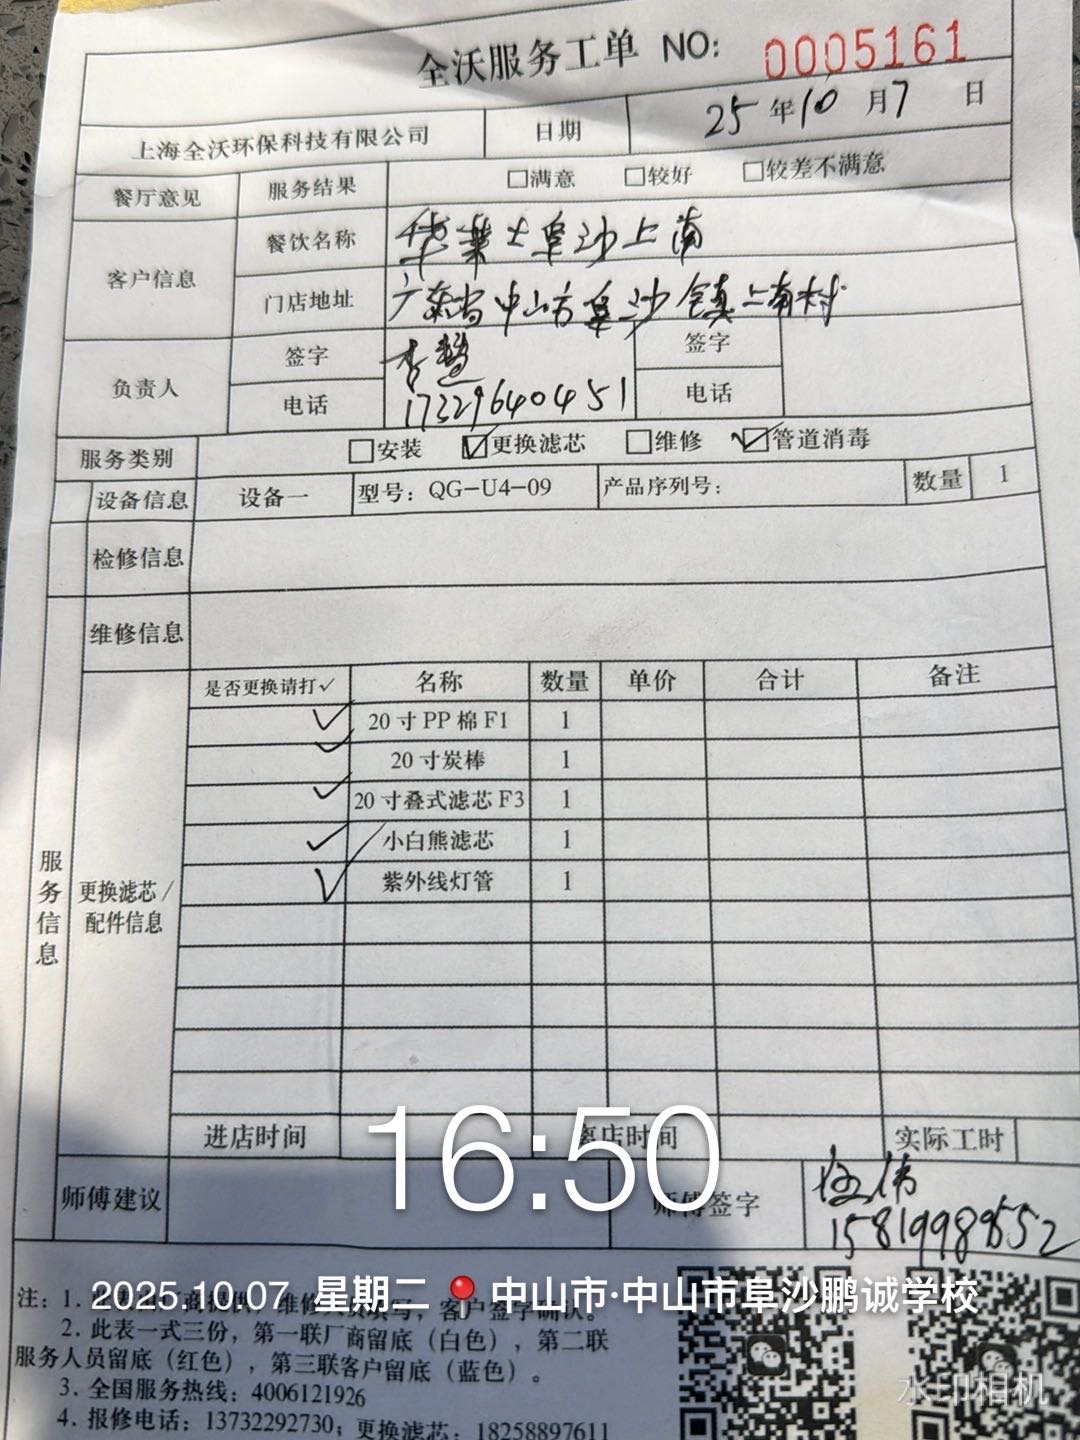 全沃服务工单 NO: 0005161
上海全沃环保科技有限公司 日期 25年10月7日
餐厅意见 服务结果 □满意 □较好 □较差不满意
客户信息 餐饮名称 华莱士阜沙上南
门店地址 广东省中山市阜沙镇上南村
负责人 签字 李慧 签字
电话 17329640451 电话
服务类别 □安装 ☑更换滤芯 □维修 ☑管道消毒
设备信息 设备一 型号：QG-U4-09 产品序列号： 数量 1
检修信息
维修信息
服务信息
更换滤芯/配件信息
是否更换请打✓ 名称 数量 单价 合计 备注
✓ 20寸PP棉F1 1
✓ 20寸炭棒 1
✓ 20寸叠式滤芯F3 1
✓ 小白熊滤芯 1
✓ 紫外线灯管 1
进店时间 离店时间 实际工时
16:50
师傅建议 师傅签字 伟
15819989552
2025.10.07 星期二 中山市·中山市阜沙鹏诚学校
注：1. 客户签字确认。
2. 此表一式三份，第一联厂商留底（白色），第二联
服务人员留底（红色），第三联客户留底（蓝色）。
3. 全国服务热线：4006121926
4. 报修电话：13732292730；更换滤芯：18258897611
水印相机